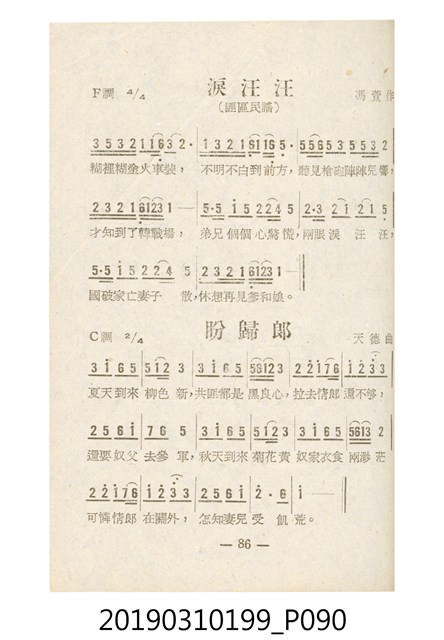 淚汪汪
(匪區民謠)
F調 4/4 馮萱作
3 5 3 2 1 1 6 3 2 · 1 3 2 1 6 1 6 5 · 5 5 6 5 3 5 5 3 2
糊裡糊塗火車裝，不明不白到前方，聽見槍砲陣陣兒響，
2 3 2 1 6 1 2 3 1 — 5·5 i 5 2 2 4 5 2·3 2 1 2 1 5
才知到了轉戰場，弟兄個個心驚慌，兩眼淚汪汪，
5·5 i 5 2 2 4 5 2 2 3 2 1 6 1 2 3 1 —
國破家亡妻子散，休想再見爹和娘。
盼歸郎
C調 2/4 天德曲
3 i 6 5 5 1 2 3 3 i 6 5 5 6 1 2 3 2 2 1 7 6 i 2 3 3
夏天到來柳色新，共匪都是黑良心，拉去情郎還不够，
2 5 6 i 7 6 5 3 i 6 5 5 1 2 3 3 i 6 5 5 6 1 3 2
還要奴父去參軍，秋天到來菊花黃奴家衣食兩渺茫
2 2 1 7 6 i 2 3 3 2 5 6 i 2 · 6 i —
可憐情郎在關外，怎知妻兒受飢荒。
— 86 —
20190310199_P090